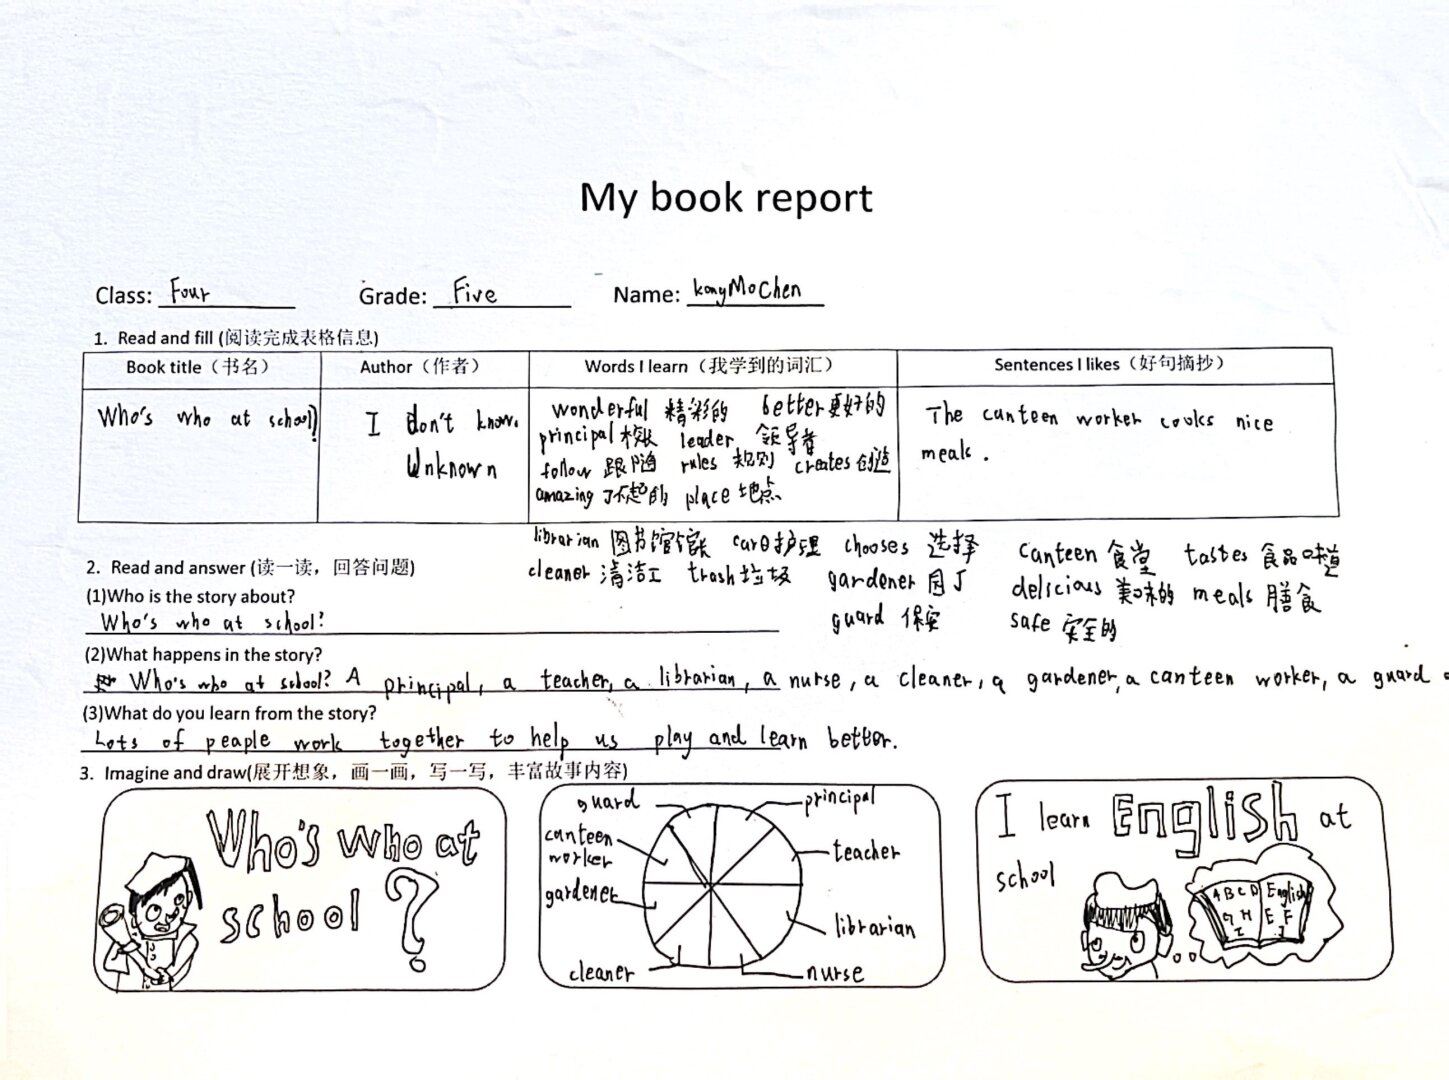 My book report
Class: Four Grade: Five Name: kongMoChen
1. Read and fill (阅读完成表格信息)
Book title（书名） Author（作者） Words I learn（我学到的词汇） Sentences I likes（好句摘抄）
Who's who at school?
I don't know.
Unknown
wonderful 精彩的 better更好的
principal 校长 leader 领导者
follow 跟随 rules 规则 creates创造
amazing 了不起的 place 地点
The canteen worker cooks nice
meals.
librarian 图书馆馆长 care护理 chooses 选择 canteen 食堂 tastes 食品味道
cleaner 清洁工 trash垃圾 gardener 园丁 delicious 美味的 meals 膳食
guard 保安 safe 安全的
2. Read and answer (读一读，回答问题)
(1)Who is the story about?
Who's who at school?
(2)What happens in the story?
Who's who at school? A principal, a teacher, a librarian, a nurse, a cleaner, a gardener, a canteen worker, a guard
(3)What do you learn from the story?
Lots of peaple work together to help us play and learn better.
3. Imagine and draw(展开想象，画一画，写一写，丰富故事内容)
Who's who at
school?
guard
principal
canteen
worker
teacher
gardener
librarian
cleaner
nurse
I learn English at
school
A B C D English
G H E F
I J